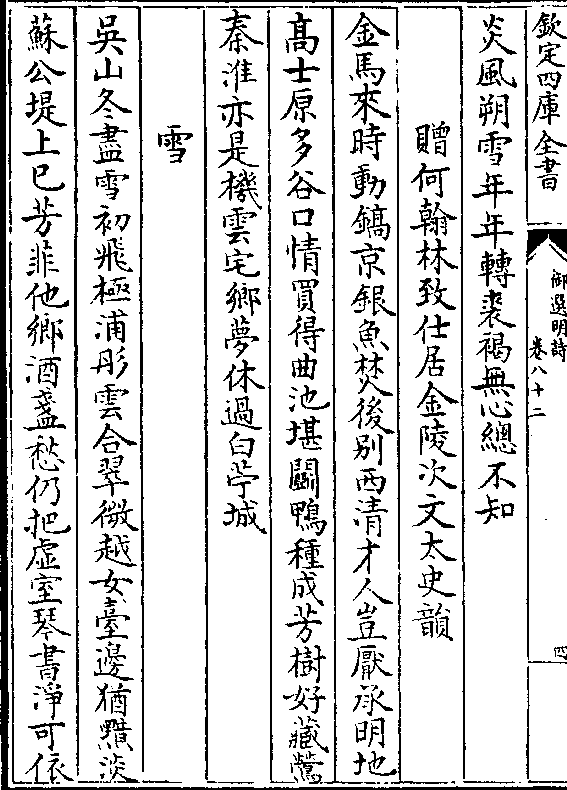 欽定四庫全書
御選明詩
卷八十二
四
炎風朔雪年年轉裘褐無心總不知
贈何翰林致仕居金陵次文太史韻
金馬來時動鎬京銀魚焚後別西清才人豈厭承明地
髙士原多谷口情買得曲池堪鬭鴨種成芳樹好藏鶯
秦淮亦是機雲宅鄉夢休過白苧城
雪
吳山冬盡雪初飛極浦彤雲合翠微越女臺邊猶黯淡
蘇公堤上已芳菲他鄉酒盞愁仍把虛室琴書淨可依